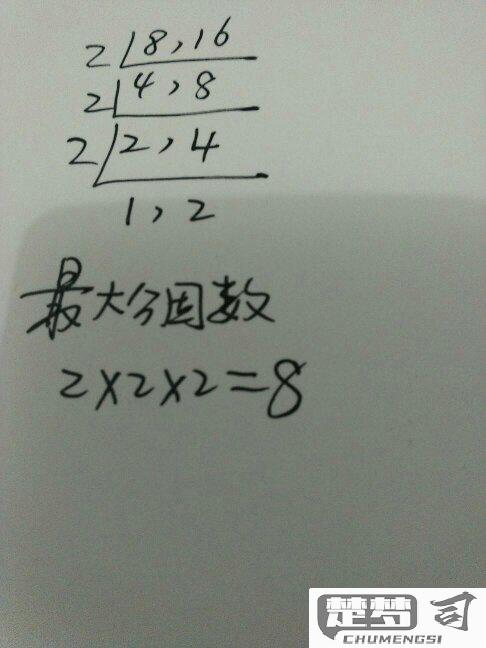 2 8,16
2 4,8
2 2,4
1,2
最大公因数
2×2×2=8
楚梦司
CHUMENGSI